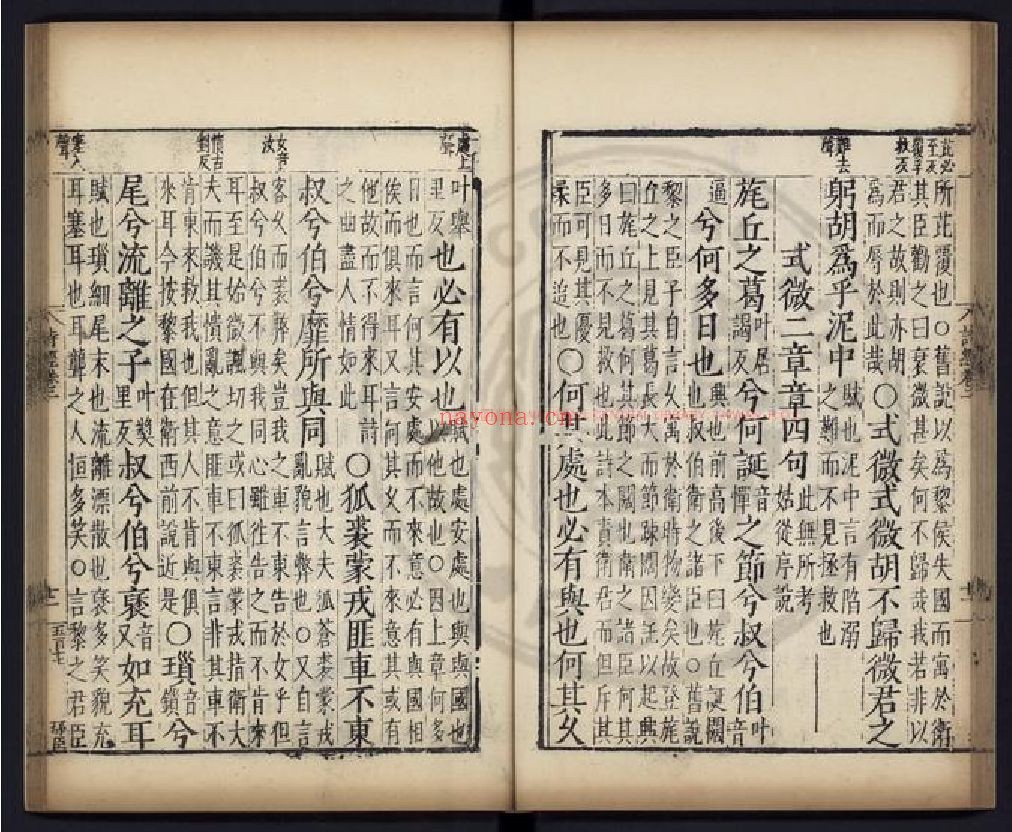 所芘覆也○舊說以爲黎侯失國而寓於衛
其臣勸之曰衰微甚矣何不歸哉我若非以
君之故則亦胡
爲而辱於此哉○式微式微胡不歸微君之
躬胡爲乎泥中
賦也泥中言有陷溺
之難而不見拯救也
式微二章章四句
此無所考
姑從序說
旄丘之葛叶居謁反兮何誕音憚之節兮叔兮伯叶音
逼兮何多日也
興也前高後下曰旄丘誕闊
也叔伯衛之諸臣也○舊說
黎之臣子自言久寓於衛時物變矣故登旄
丘之上見其葛長大而節疎闊因託以起興
曰旄丘之葛何其節之闊也衛之諸臣何其
多日而不見救也此詩本責衛君而但斥其
臣可見其優
柔而不迫也○何其處也必有與也何其久
叶舉里反也必有以也
賦也處安處也與與國也
以他故也○因上章何多
日也而言何其安處而不來意必有與國相
俟而俱來耳又言何其久而不來意其或有
他故而不得來耳詩
之曲盡人情如此○狐裘蒙戎匪車不東
叔兮伯兮靡所與同
賦也大夫狐蒼裘蒙戎
亂貌言弊也○又自言
客久而裘弊矣豈我之車不東告於女乎但
叔兮伯兮不與我同心雖往告之而不肯來
耳至是始微諷切之或曰狐裘蒙戎指衛大
夫而譏其憒亂之意匪車不東言非其車不
肯東來救我也但其人不肯與俱
來耳今按黎國在衛西前說近是○瑣鎖兮
尾兮流離之子叶奬里反叔兮伯兮褎音又如充耳
賦也瑣細尾末也流離漂散也褎多笑貌充
耳塞耳也耳聾之人恒多笑○言黎之君臣
芘必至反
難去聲
處上聲
女音汝
憒古對反
nayona.cn